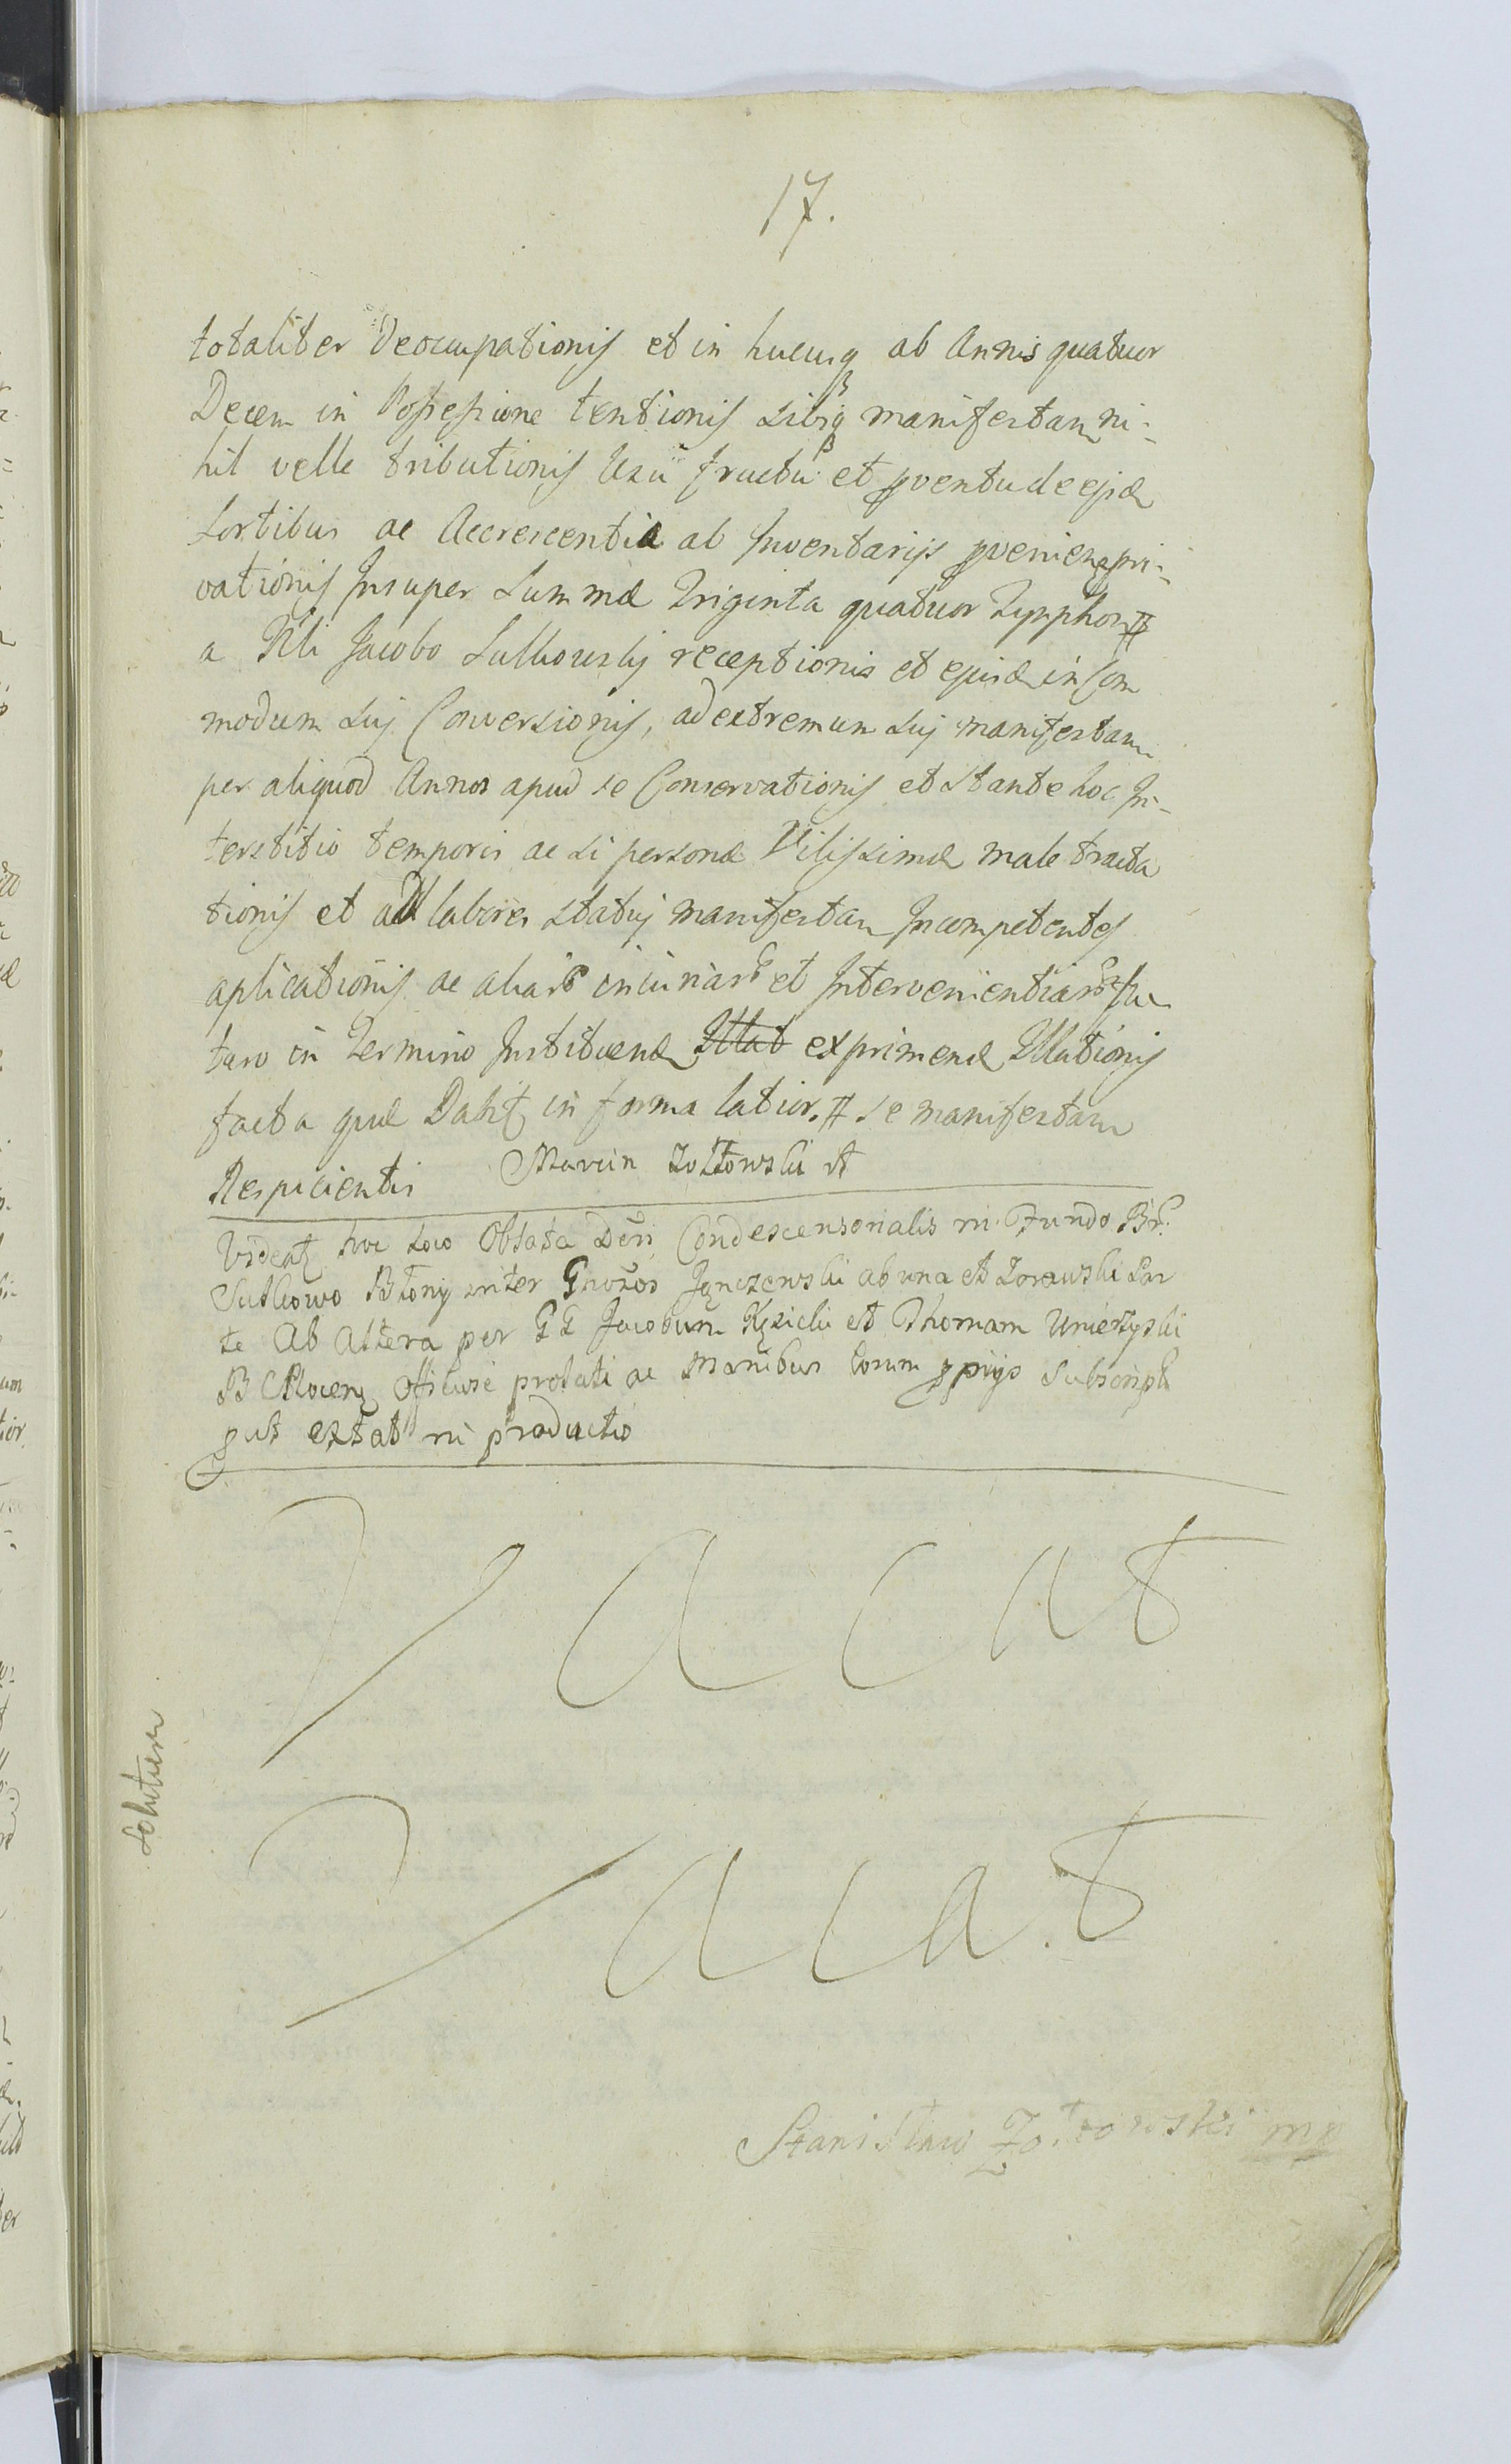 17.
totaliter Deoccupationis et in hucusq ab Annis quatuor
Decem in Possessione tentionis sibiq manifestan ni-
hil velle tributionis Usu fructu et pventu de ejsd
Sortibus ac Accrescentia ab Inventarijs pvenien pri-
vationis Insuper Summæ Triginta quatuor Tynphon
a Jacobo Sutkowskj receptionis et ejusd in Com
modum Suj Conversionis, ad extremum Suj manifestan
per aliquod Annos apud se Conservationis et Stante hoc In-
terstitio temporis ac si personæ Vilissimæ male tracta
tionis et ad labores Statuj manifestan Incompetentes
aplicationis ac aliar iniuriar et Intervenientiar fu
turo in Termino Instituend Illat exprimend Illationis
facta quæ Dabit in forma latior. se manifestan
Respicientis Marcin Żołtowski
Videat hoc Loco Oblata Dcri Condescensorialis in Fundo Br.
Sutkowo Błony inter Grosos Jęnczewski ab una et Zorawski Par
te Ab Altera per GG Jacobum Kęsicki et Thomam Umieszyski
B C Plocen Officiose prolati ac Manibus eorum pprijs Subscript
put extat in producto
Vacat
Vaca.t
Solutum
Stanisław Żołtowski mp